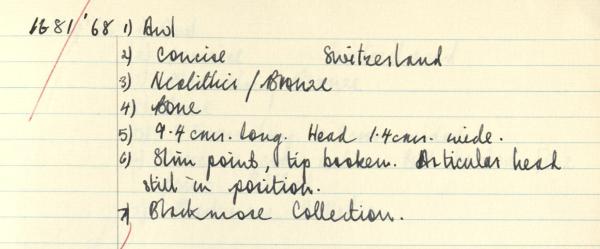 1681/'68 1) Awl
2) Concise Switzerland
3) Neolithic / Bronze
4) Bone
5) 9.4 cms. long. Head 1.4 cms. wide.
6) Slim point, tip broken. Articular head
still in position.
7) Blackmore Collection.